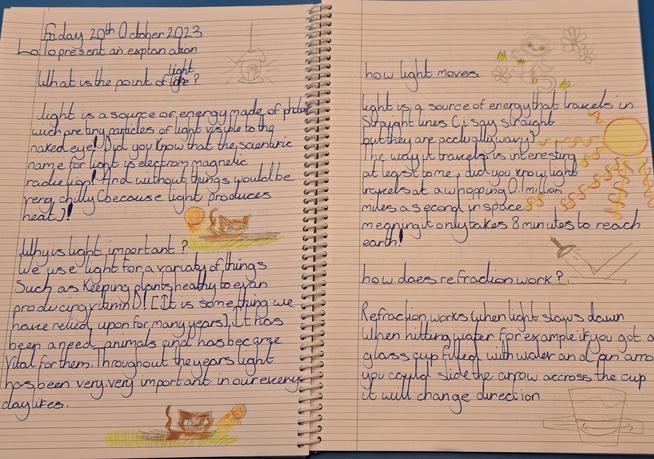 Friday 20th October 2023
Lo To present an explanation
What is the point of light?
light is a source of energy made of
wich are tiny particles of light visible to the
naked eye! Did you know that the scientific
name for light is electrom magnetic
And without things would be
very chilly (because light produces
heat)!
Why is light important?
We use light for a variaty of things
Such as Keeping plants healthy to
producing vitamin D! [It is something we
have relied upon for many years]. It has
been a need animals and has became
Vital for them. Throughout the years light
has been very very important in our every
day lifes.
how light moves
light is a source of energy that travels in
Straight lines (i say straight
but they are acctually wavy?
The way it travels is interesting
at least to me, did you know light
travels at a whopping 0.1 million
miles a second in space
meaning it only takes 8 minutes to reach
earth!
how does refraction work?
Refraction works when light slows down
When hitting water for example if you got a
glass cup filled with water and an arro
you could slide the arrow accross the cup
it will change direction